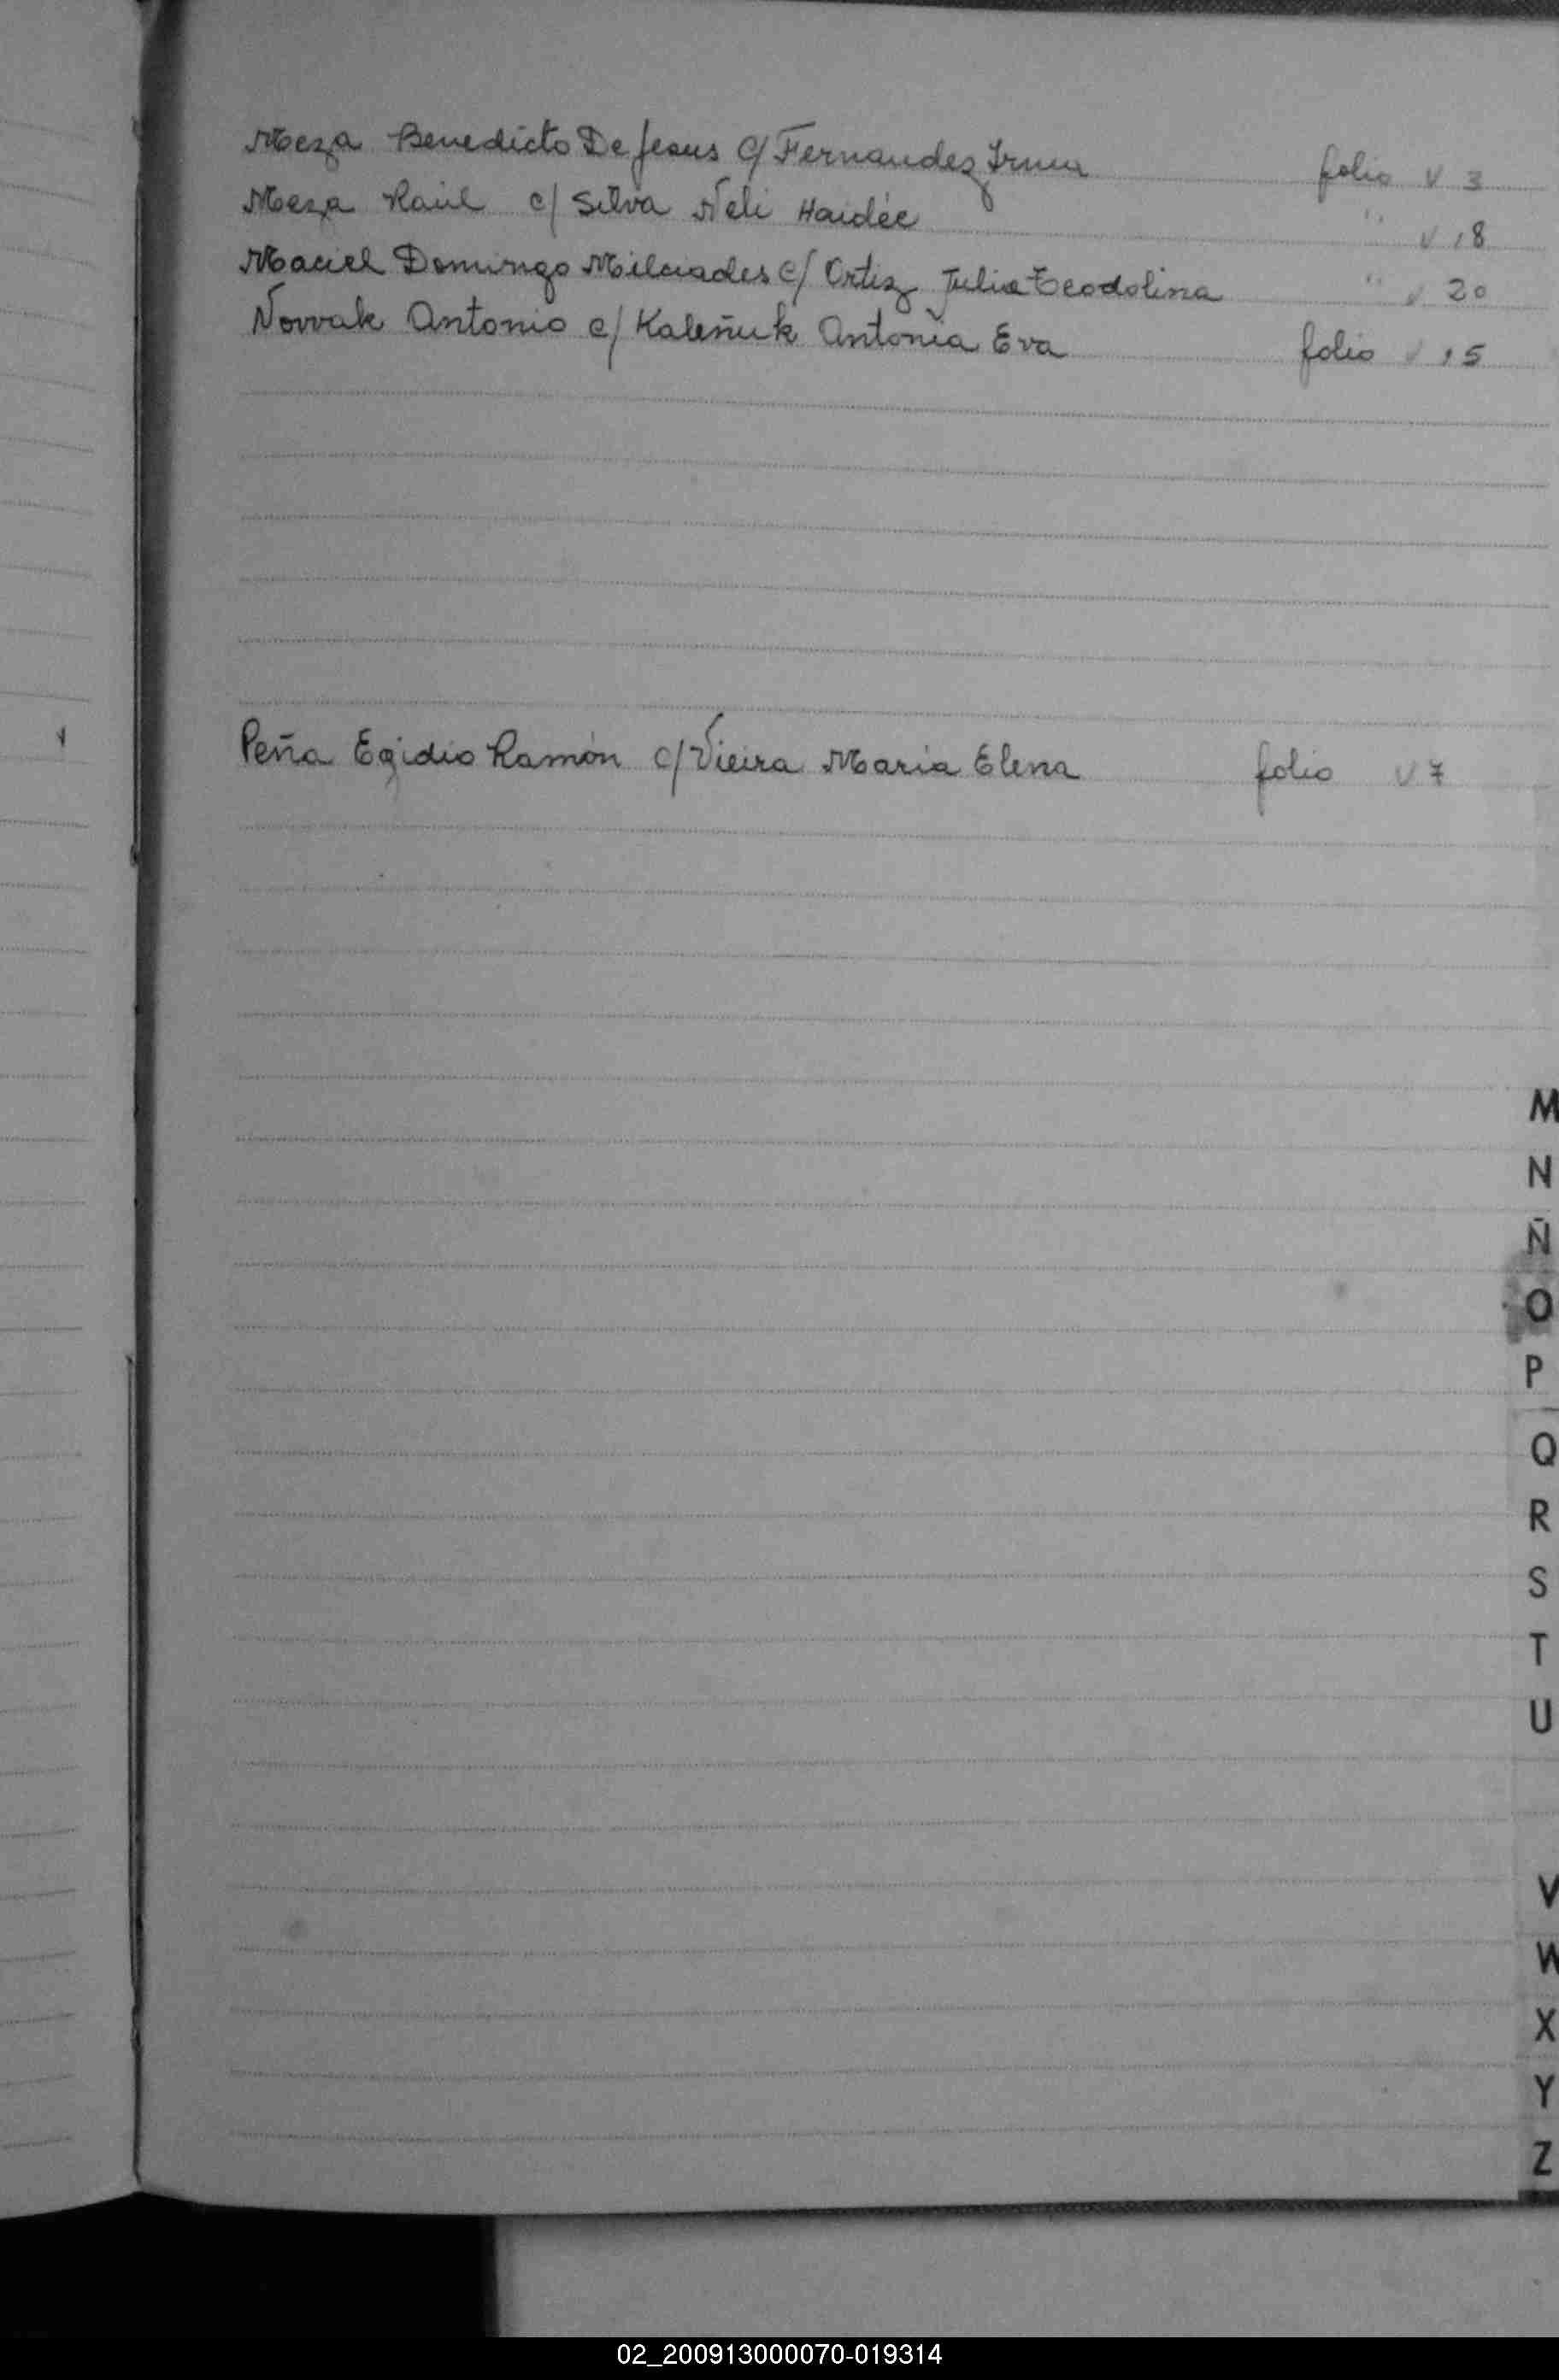 Meza Benedicto De Jesus c/ Fernandez Irma folio v 3
Meza Raúl c/ Silva Neli Haidée " v 18
Maciel Domingo Milciades c/ Ortiz Julia Teodolina " v 20
Novvak Antonio c/ Kaleñuk Antonia Eva folio v 15
Peña Egidio Ramón c/ Vieira Maria Elena folio v 7
M
N
Ñ
O
P
Q
R
S
T
U
V
W
X
Y
Z
02_200913000070-019314